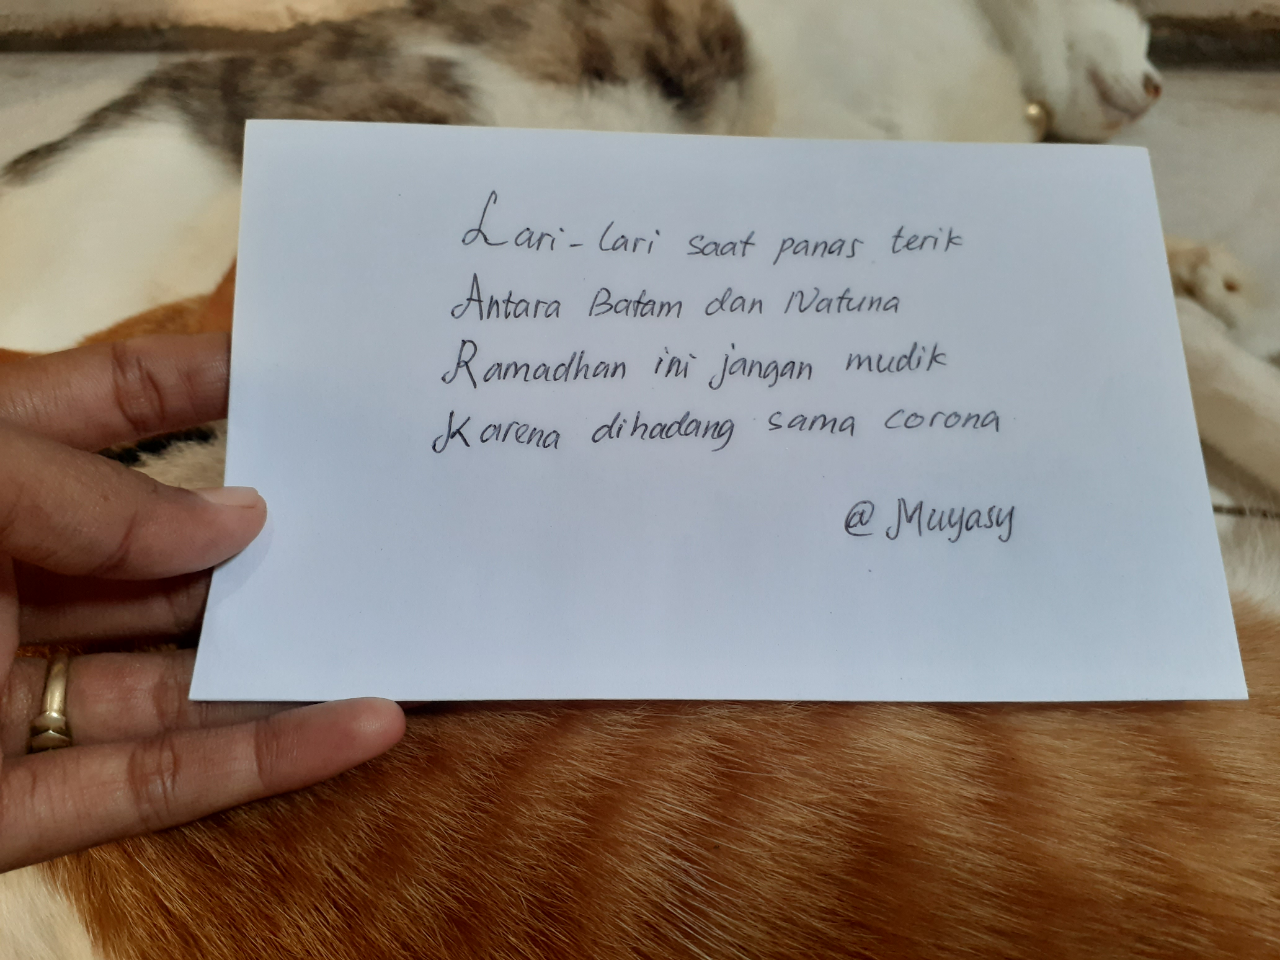 Lari-lari saat panas terik
Antara Batam dan Natuna
Ramadhan ini jangan mudik
Karena dihadang sama corona
@Muyasy